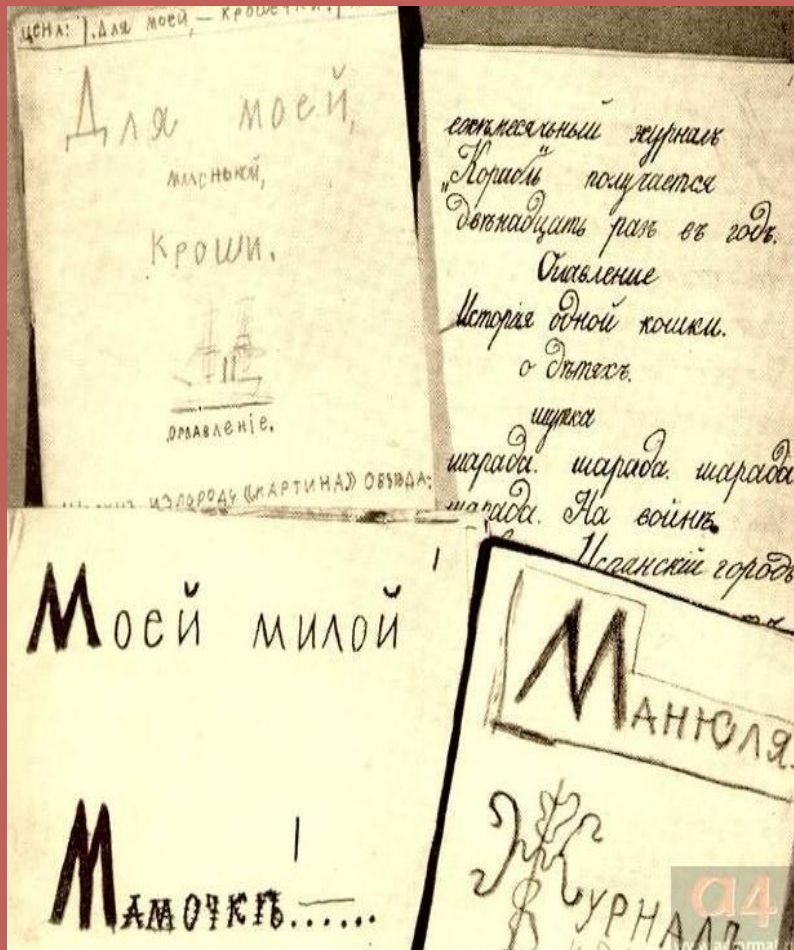 ЦЕНА: 1. Для моей, – крошечки.
Для моей,
маленькой,
кроши.
оглавленіе.
ИЗЛОРОДУ «(КАРТИНА)» ОБЪѣДА:
ежемесячный журналъ
„Корабль" получается
двѣнадцать разъ въ годъ.
Оглавление
Исторія одной кошки.
о дѣтяхъ.
шутка
шарада. шарада. шарада
шарада. На войнѣ.
Испанскій городъ
Моей милой
Мамочкѣ......
Манюля.
Журналъ
a4